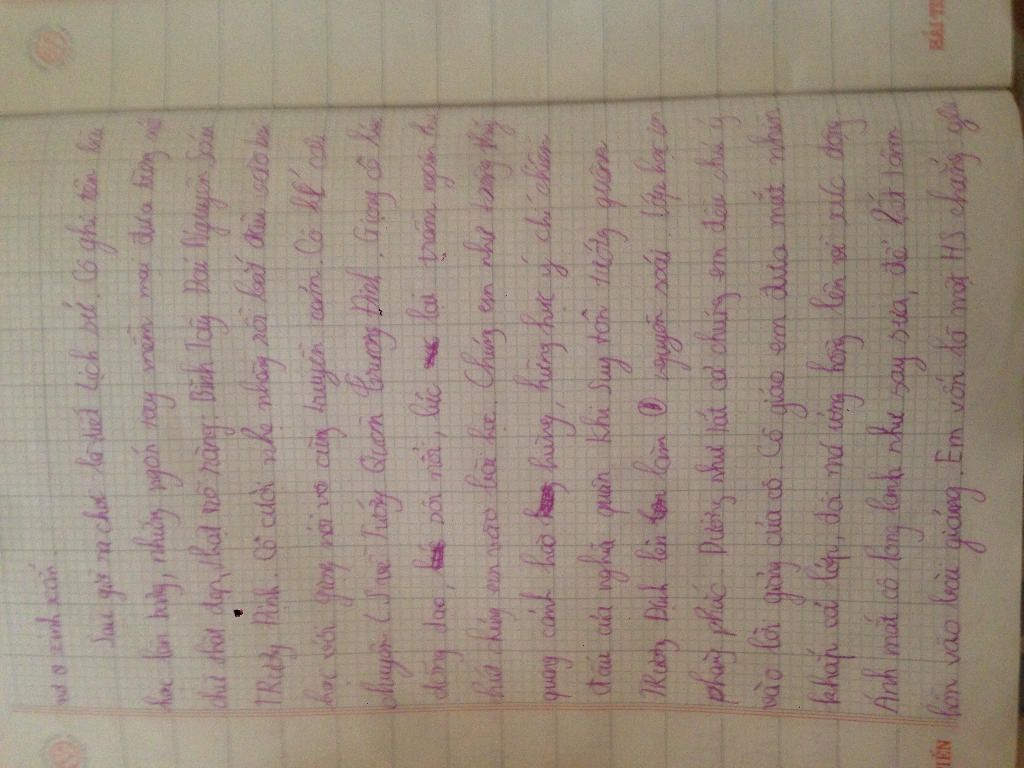 nơ ở xinh xắn.
Sau giờ ra chơi là tiết Lịch sử. Cô ghi tên bài
học lên bảng, những ngón tay mềm mại đưa từng nét
chữ thật đẹp, thật rõ ràng: Bình Tây Đại Nguyên Soái
Trương Định. Cô cười nhẹ nhàng rồi bắt đầu
học với giọng nói vô cùng truyền cảm. Cô kể
chuyện về Tướng Quân Trương Định. Giọng cô lúc
dõng dạc, sôi nổi, lúc lại trầm ngâm
chúng em vào bài học. Chúng em như
quang cảnh hào hùng, hừng hực ý chí chiến
đấu của nghĩa quân khi suy tôn tướng quân
Trương Định lên làm nguyên soái. Lớp học im
phăng phắc. Dường như tất cả chúng em đều chú ý
vào lời giảng của cô. Cô giáo em đưa mắt nhìn
khắp cả lớp, đôi má ửng hồng lên vì xúc động
Ánh mắt cô long lanh như say sưa, để hết tâm
hồn vào bài giảng. Em vốn là một HS chẳng
HẢI
TIẾN